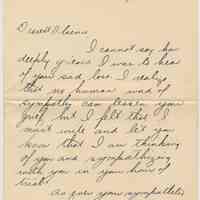 Dearest Oleana
I cannot say how
deeply grieved I was to hear
of your sad loss. I realize
that no human word of
sympathy can lessen your
grief but I felt that I
must write and let you
know that I am thinking
of you and sympathizing
with you in your hour of
trial.
As ever your sympathetic